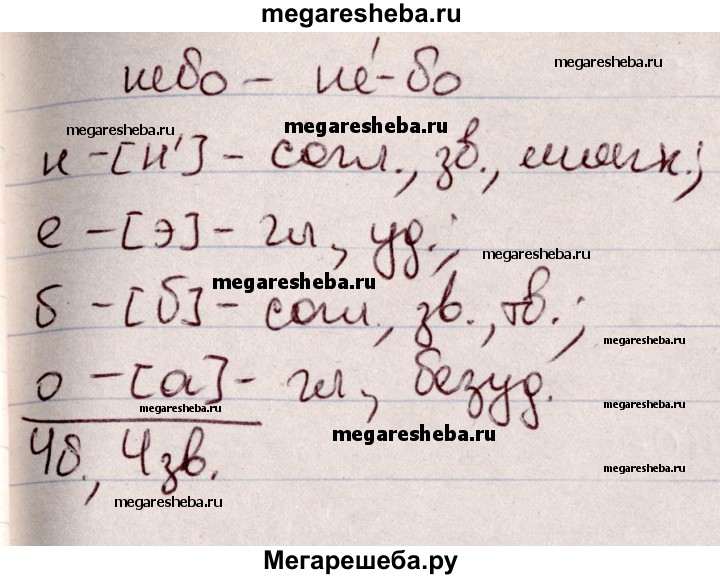 megaresheba.ru
небо – не́-бо
megaresheba.ru
megaresheba.ru
megaresheba.ru
н – [н'] – согл., зв., мягк.;
е – [э] – гл., уд.;
megaresheba.ru
megaresheba.ru
б – [б] – согл., зв., тв.;
megaresheba.ru
о – [а] – гл., безуд.
megaresheba.ru
megaresheba.ru
megaresheba.ru
4б., 4зв.
megaresheba.ru
megaresheba.ru
Мегарешеба.ру